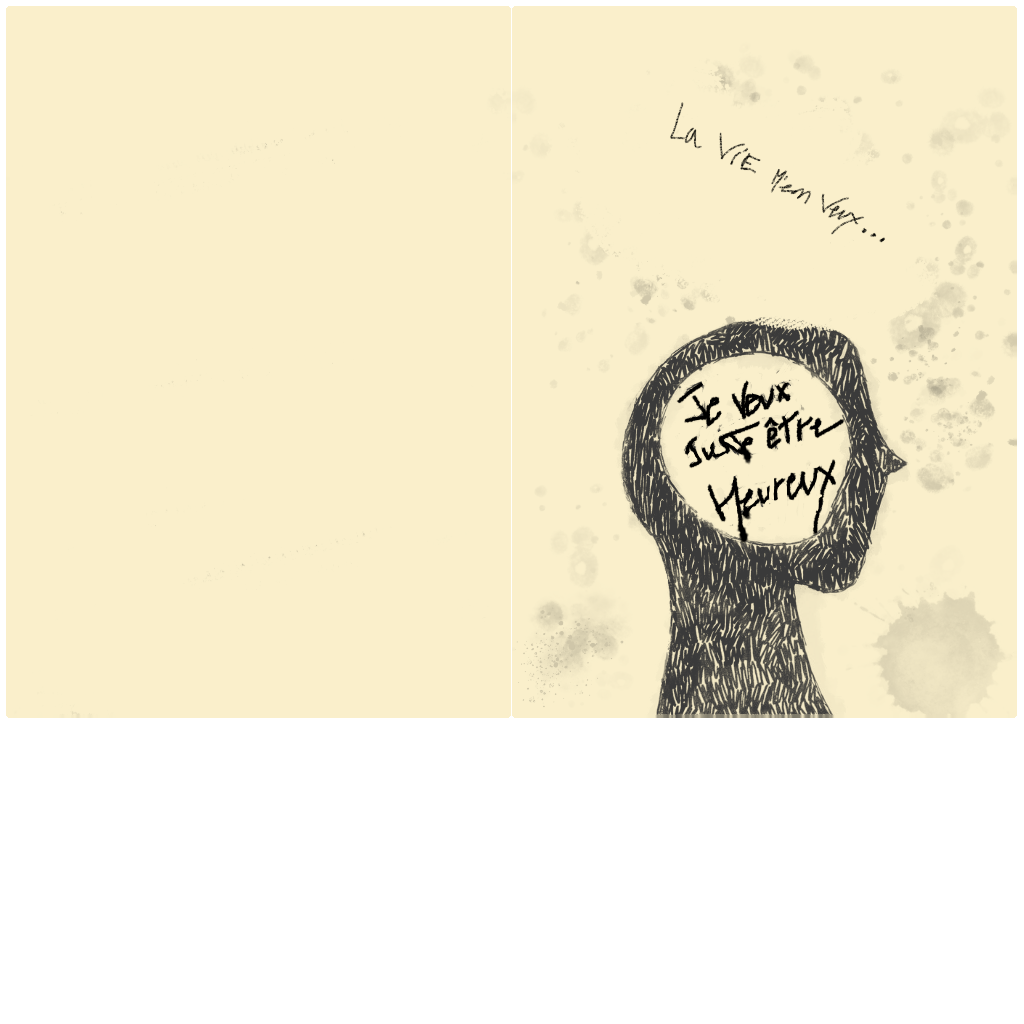 La ViE M'en Veux...
Je Veux
Juste être
Heureux